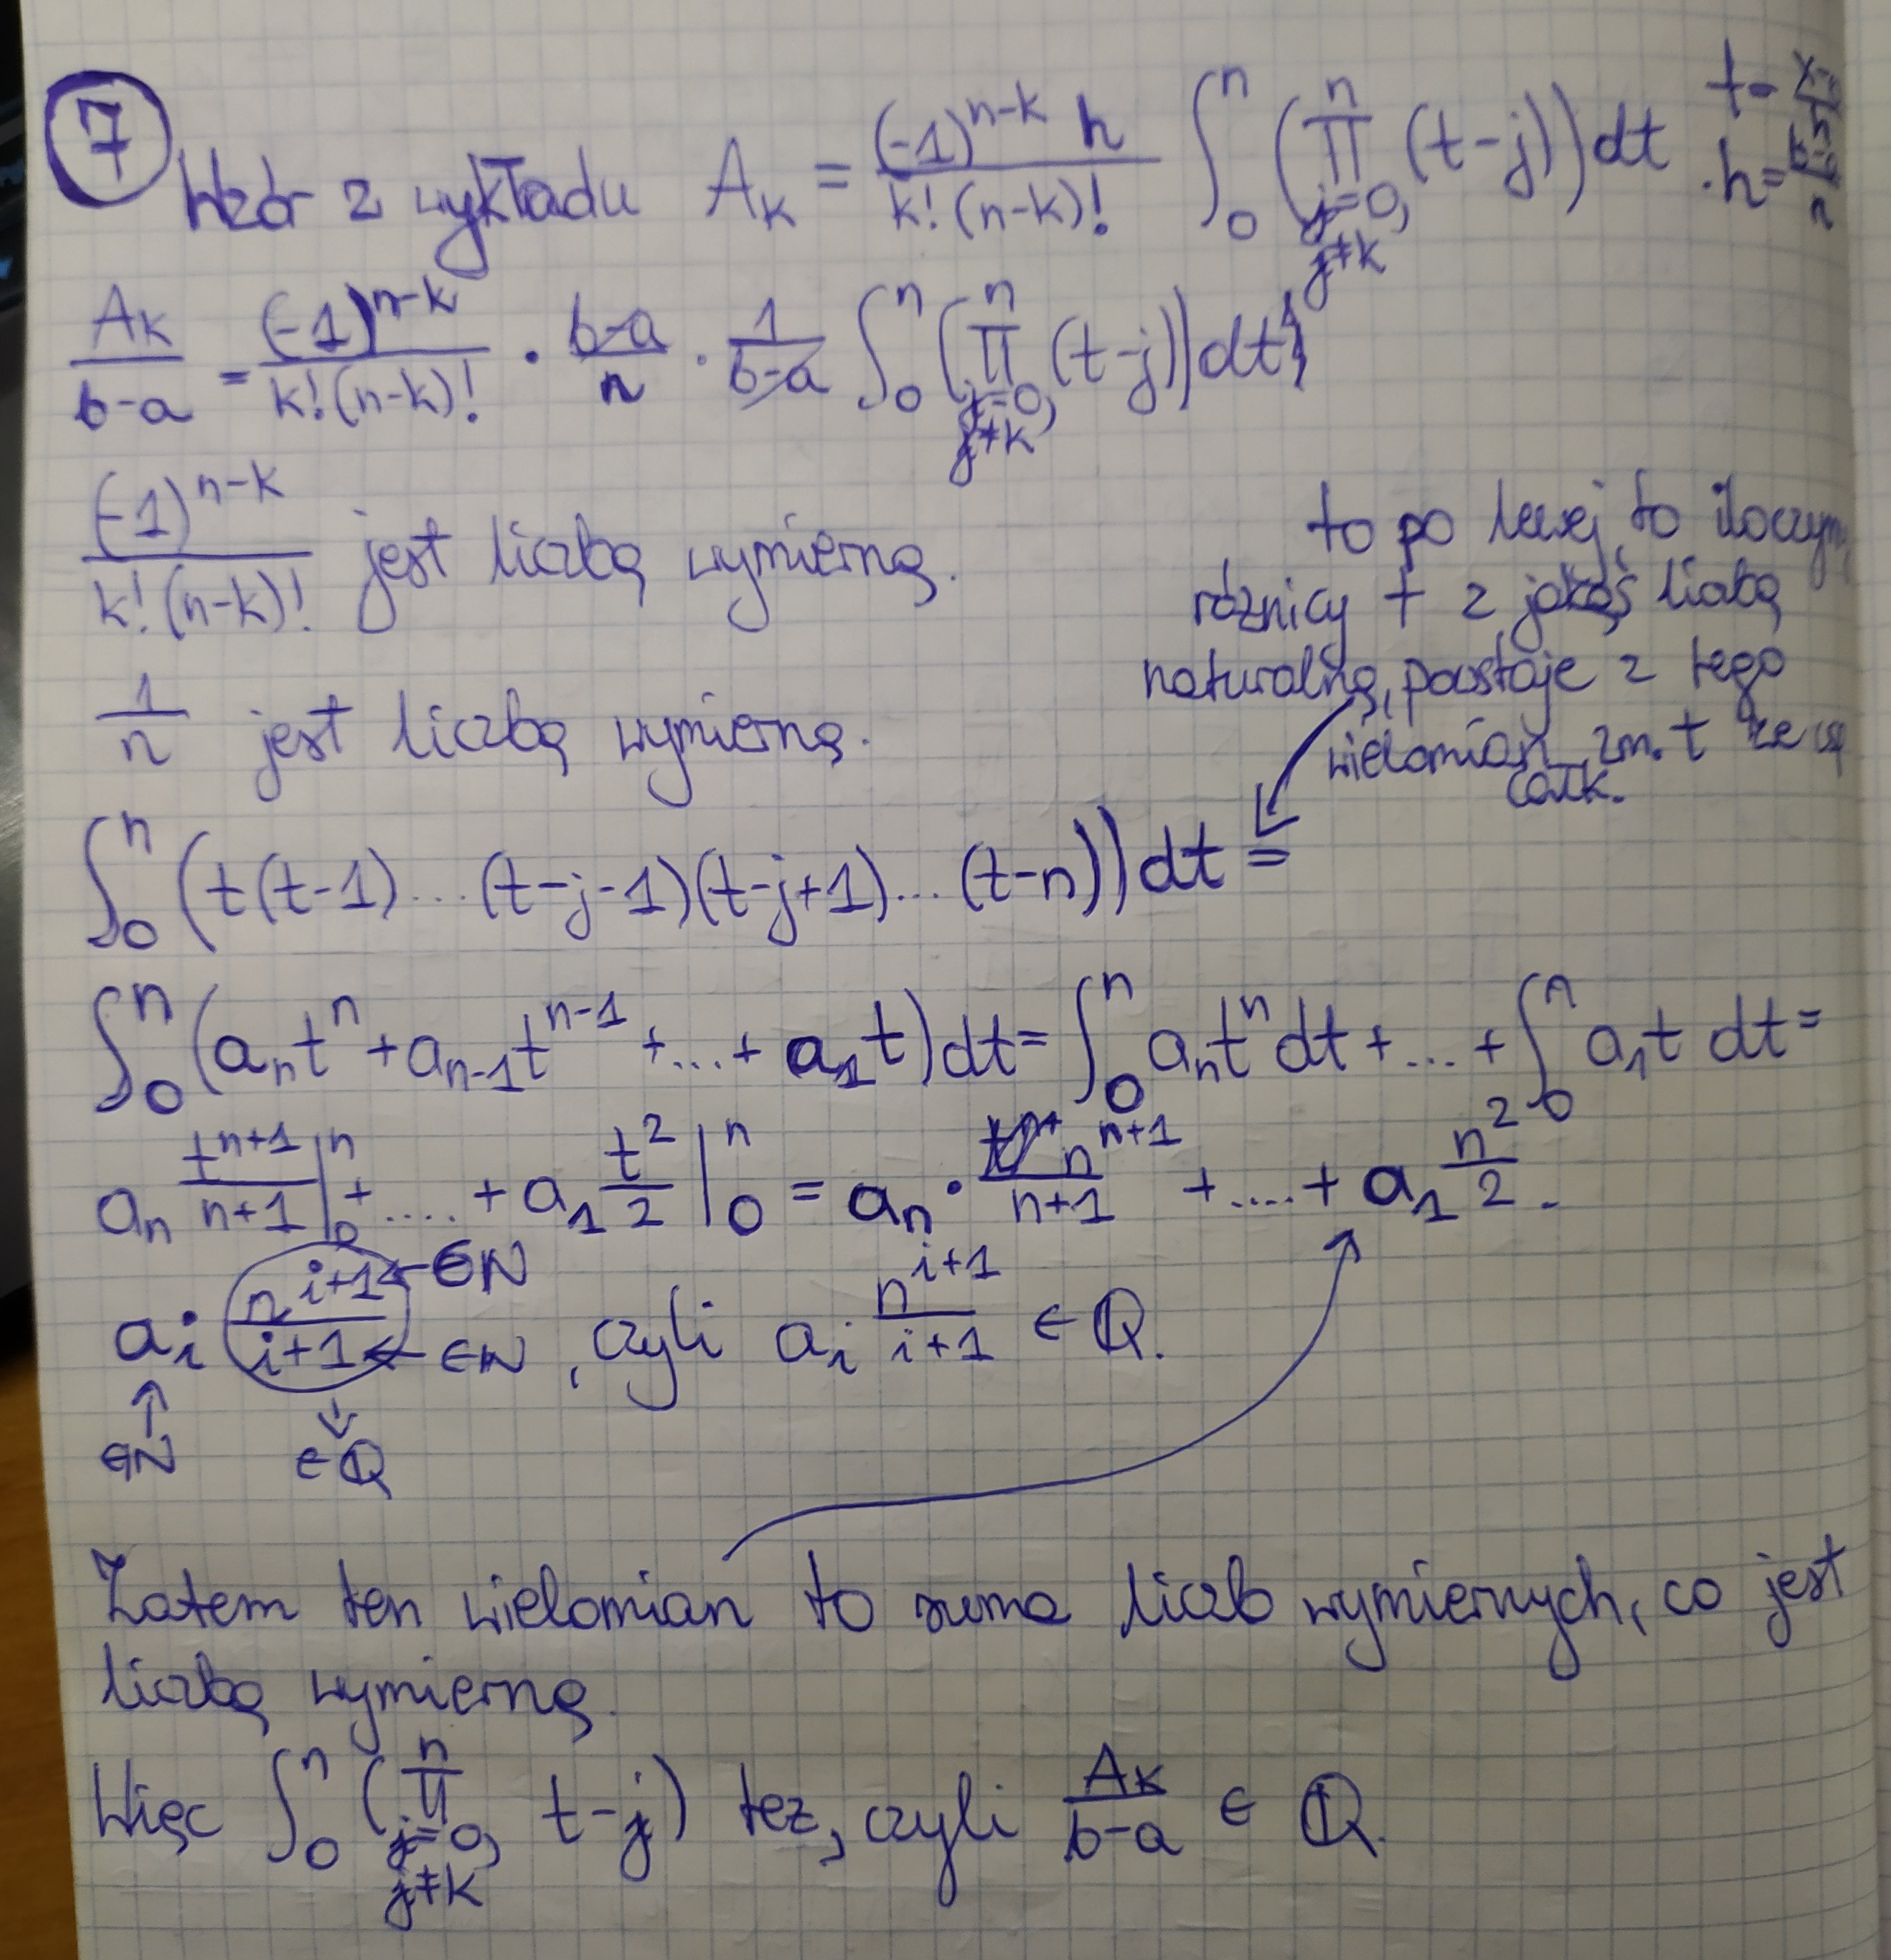 7
Wzór z wykładu A_k = \frac{(-1)^{n-k} h}{k!(n-k)!} \int_0^n (\prod_{j=0, j≠k}^n (t-j)) dt
\frac{A_k}{b-a} = \frac{(-1)^{n-k}}{k!(n-k)!} · \frac{b-a}{n} · \frac{1}{b-a} \int_0^n (\prod_{j=0, j≠k}^n (t-j)) dt
\frac{(-1)^{n-k}}{k!(n-k)!} jest liczbą wymierną.
to po lewej to iloczyn
różnicy t z jakąś liczbą
naturalną, powstaje z tego
wielomian zm. t ze wsp
całk.
\frac{1}{n} jest liczbą wymierną.
\int_0^n (t(t-1)...(t-j-1)(t-j+1)...(t-n)) dt =
\int_0^n (a_n t^n + a_{n-1} t^{n-1} + ... + a_1 t) dt = \int_0^n a_n t^n dt + ... + \int_0^n a_1 t dt =
a_n \frac{t^{n+1}}{n+1} |_0^n + .... + a_1 \frac{t^2}{2} |_0^n = a_n · \frac{n^{n+1}}{n+1} + .... + a_1 \frac{n^2}{2}.
a_i \frac{n^{i+1}}{i+1} ← ∈ N ← ∈ N, czyli a_i \frac{n^{i+1}}{i+1} ∈ Q.
∈ N ∈ Q
Zatem ten wielomian to suma liczb wymiernych, co jest
liczbą wymierną.
Więc \int_0^n (\prod_{j=0, j≠k}^n t-j) też, czyli \frac{A_k}{b-a} ∈ Q.